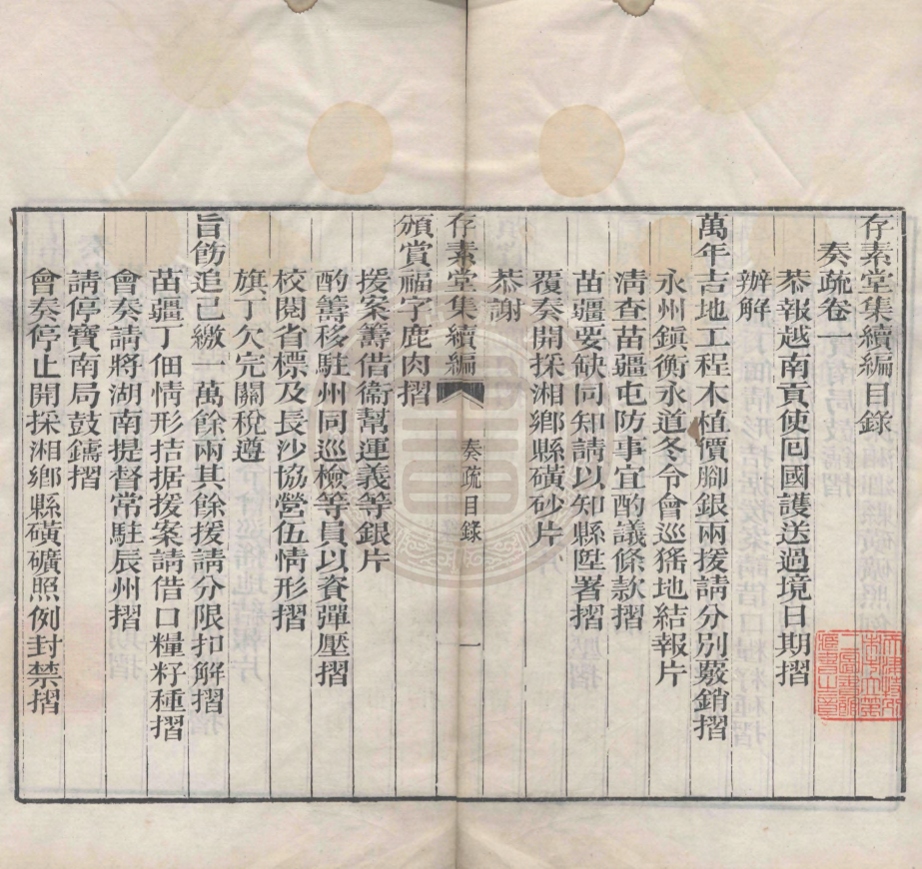 存素堂集續編目錄
奏疏卷一
恭報越南貢使囘國護送過境日期摺
辦解
萬年吉地工程木植價腳銀兩援請分別覈銷摺
永州鎭衡永道冬令會巡猺地結報片
淸查苗疆屯防事宜酌議條款摺
苗疆要缺同知請以知縣陞署摺
覆奏開採湘鄉縣磺砂片
恭謝
存素堂集續編
奏疏目錄
一
頒賞福字鹿肉摺
援案籌借衞幫運義等銀片
酌籌移駐州同巡檢等員以資彈壓摺
校閱省標及長沙協營伍情形摺
旗丁欠完關稅遵
旨飭追已繳一萬餘兩其餘援請分限扣解摺
苗疆丁佃情形拮据援案請借口糧籽種摺
會奏請將湖南提督常駐辰州摺
請停寶南局鼓鑄摺
會奏停止開採湘鄉縣磺礦照例封禁摺